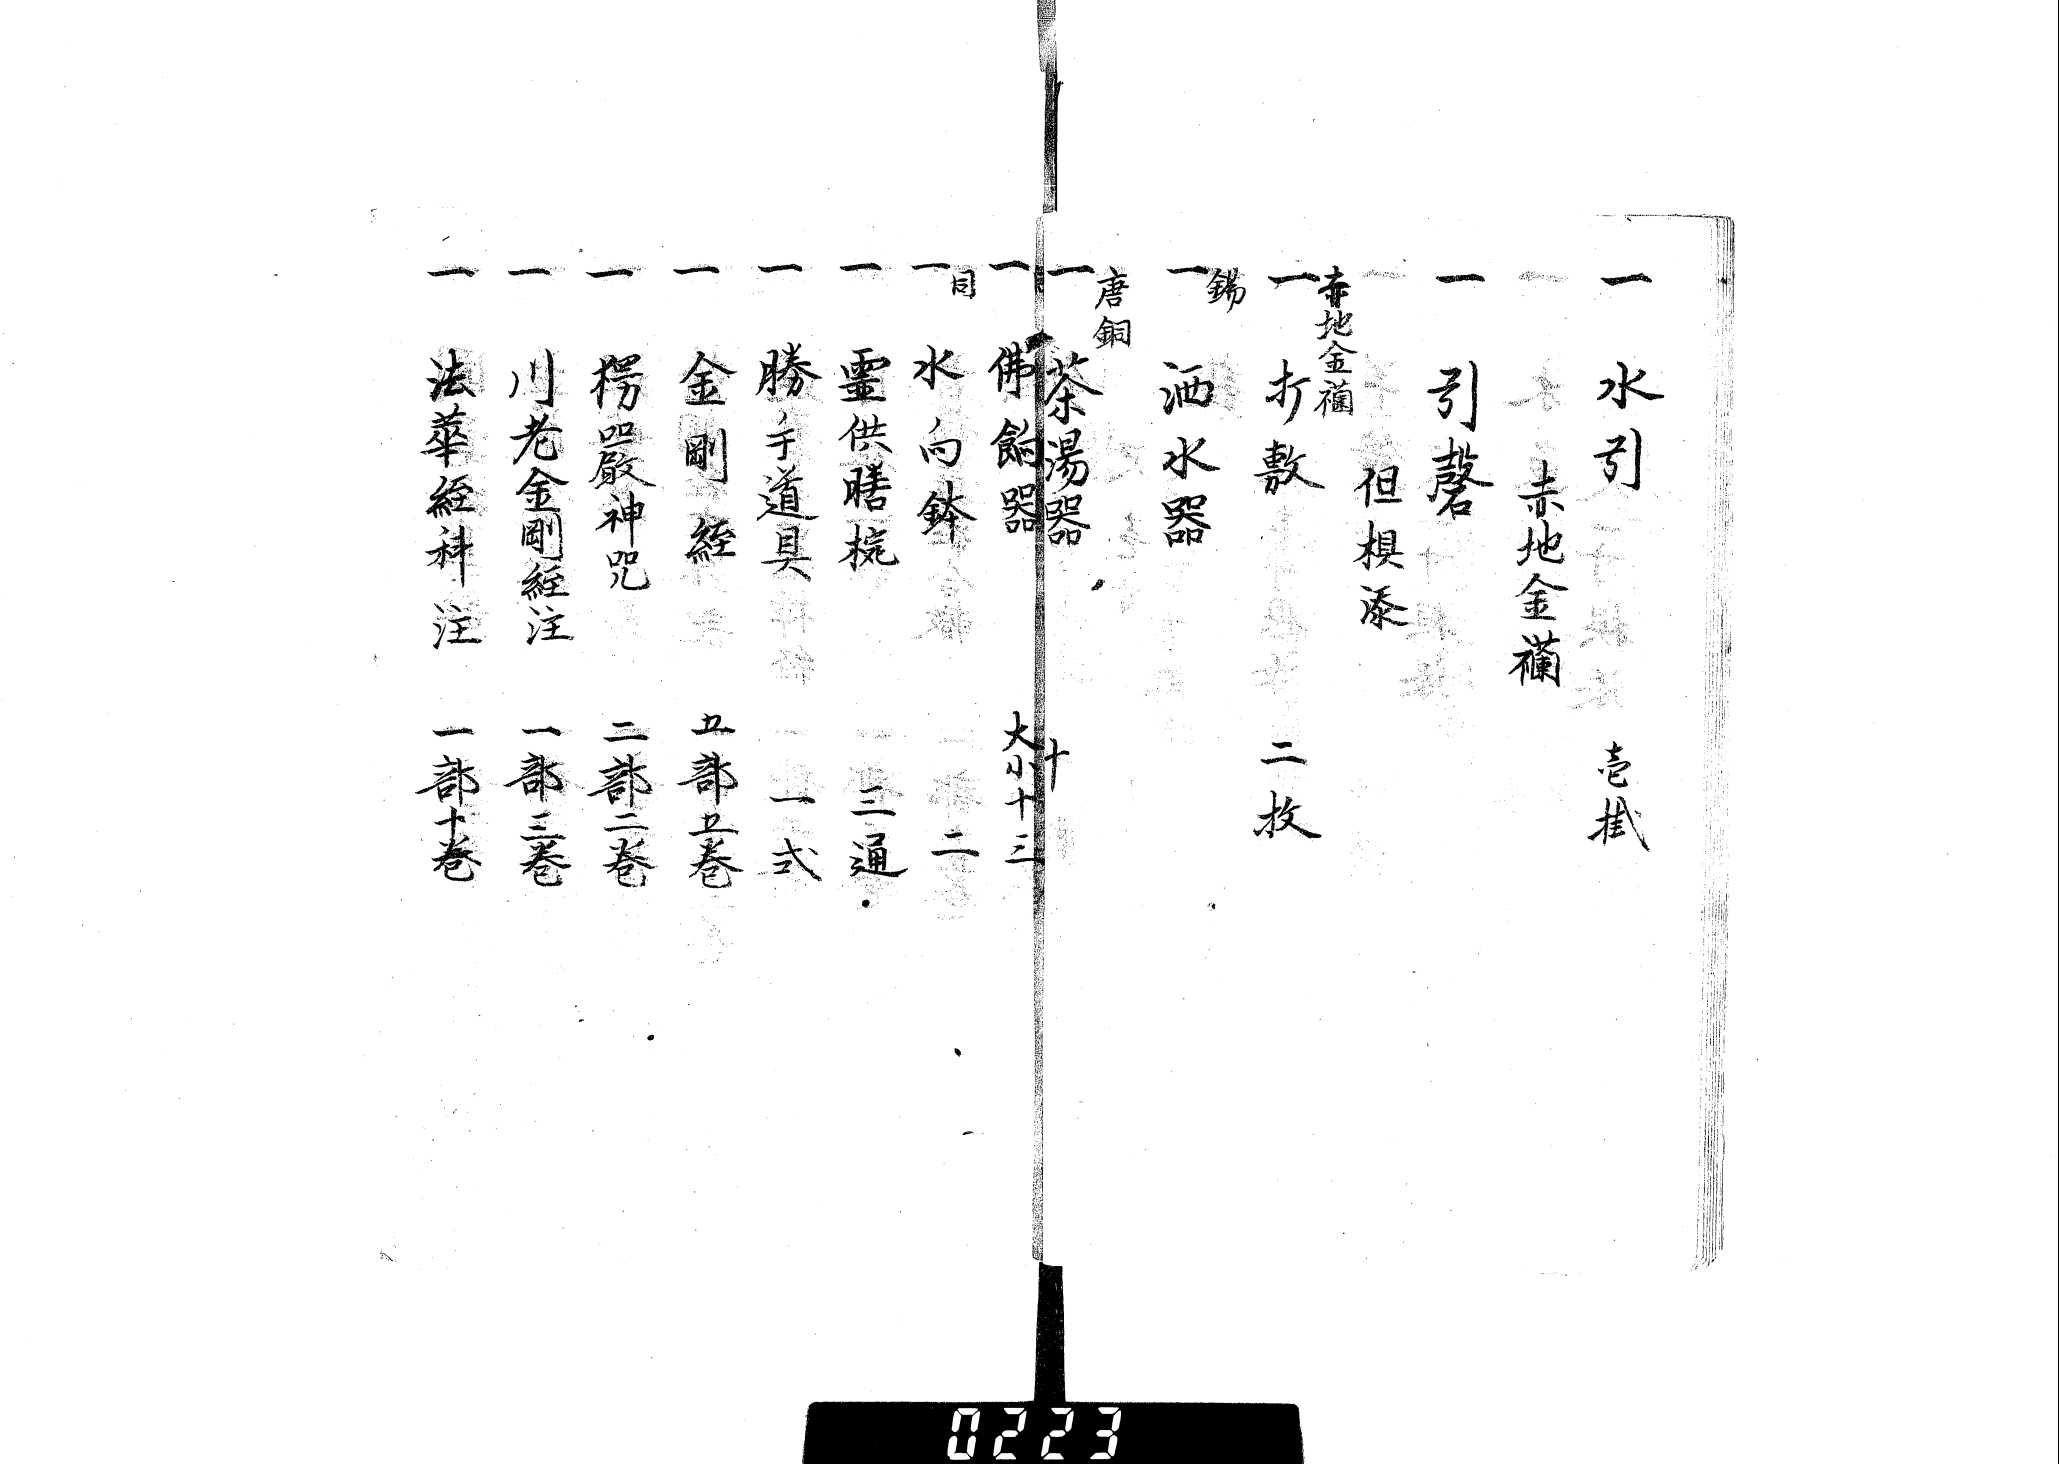 一 水引 壱掛
赤地金襴
一 引磬
但棋添
赤地金襴
一 打敷 二枚
錫
一 洒水器
唐銅
一 茶湯器 十
一 佛餉器 大小十三
同
一 水向鉢 二
一 霊供膳椀 三通
一 勝手道具 一式
一 金剛經 五部五巻
一 楞嚴神咒 二部二巻
一 川老金剛經注 一部三巻
一 法華經科注 一部十巻
0223